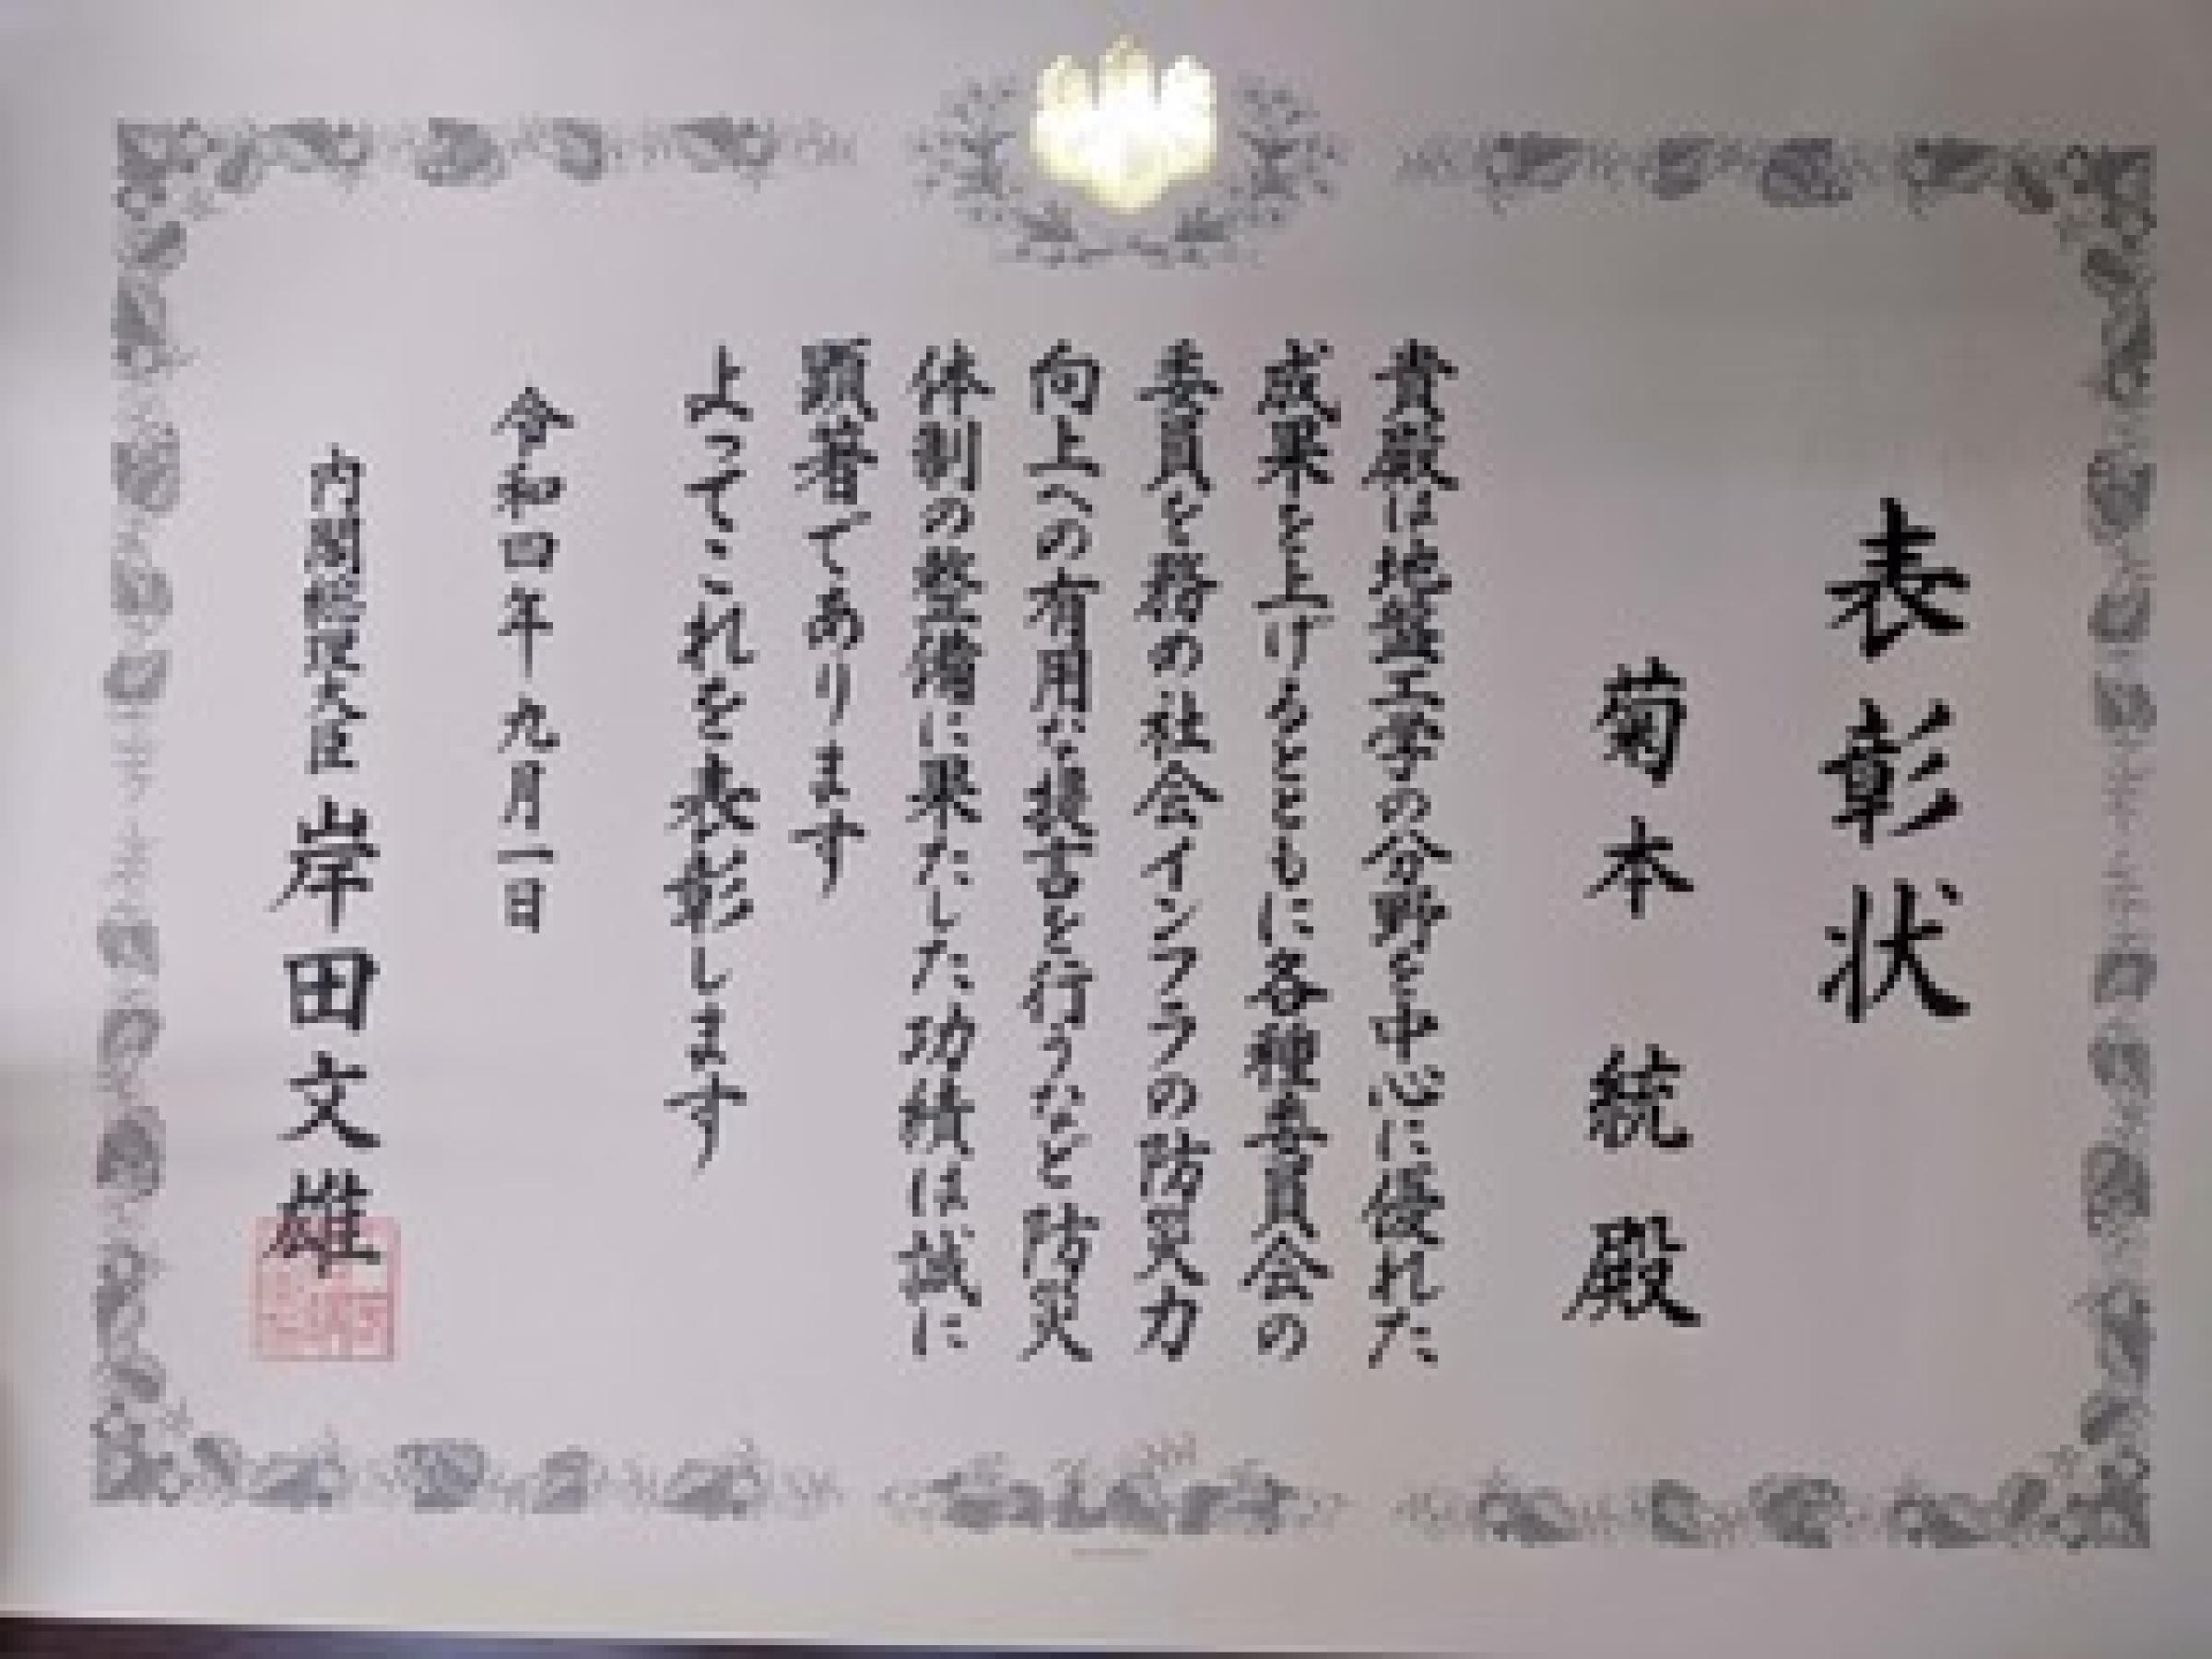 表彰状
菊本 統 殿
貴殿は地盤工学の分野を中心に優れた
成果を上げるとともに各種委員会の
委員を務め社会インフラの防災力
向上への有用な提言を行うなど防災
体制の整備に果たした功績は誠に
顕著であります
よってこれを表彰します
令和四年九月一日
内閣総理大臣 岸田文雄